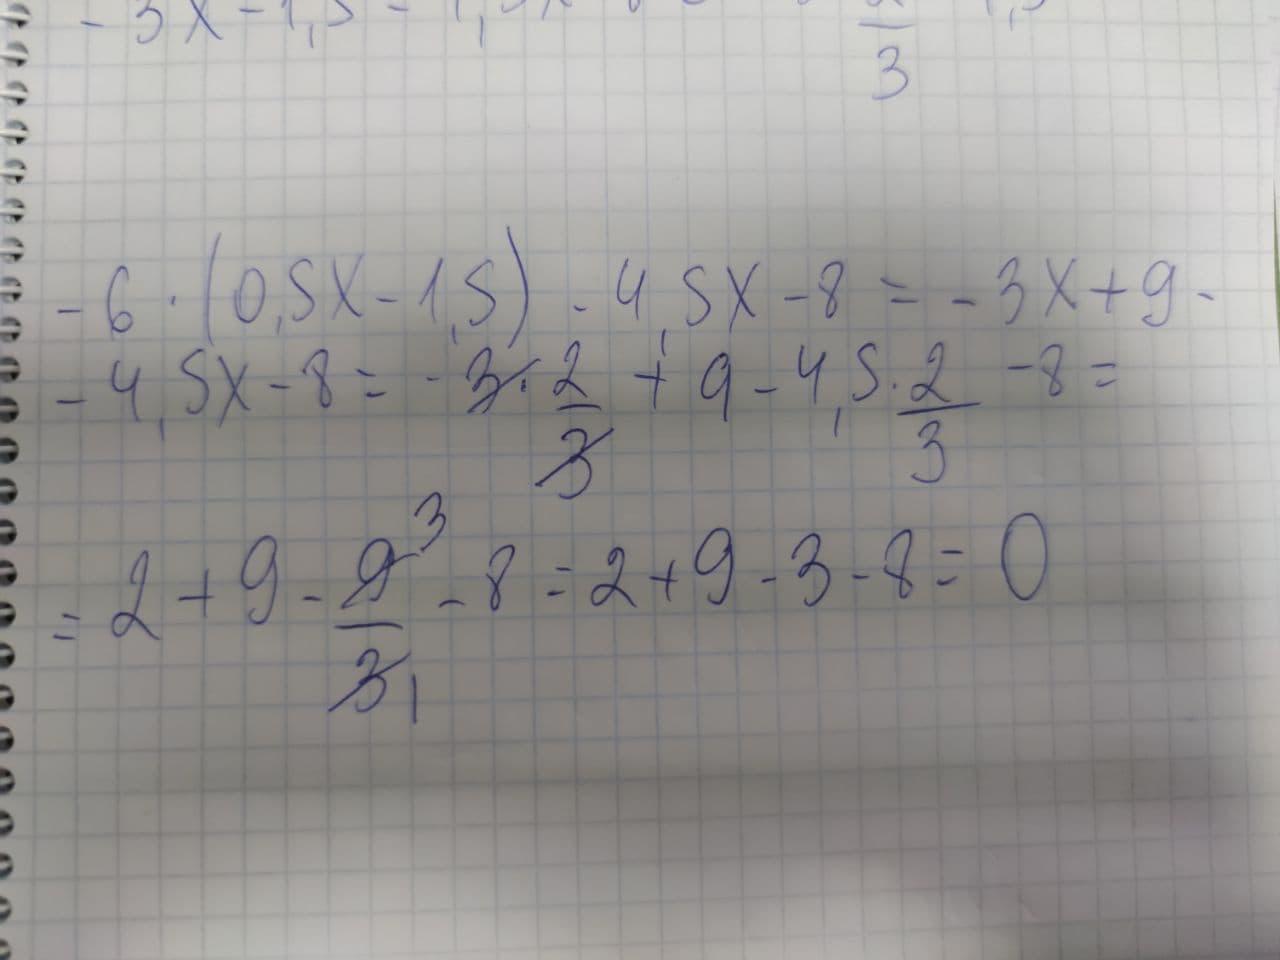 - 3x - 1,5 - 
3
- 6 · (0,5x - 1,5) - 4,5x - 8 = - 3x + 9 -
- 4,5x - 8 = - 3 · 2/3 + 9 - 4,5 · 2/3 - 8 =
= 2 + 9 - 9 3/3 1 - 8 = 2 + 9 - 3 - 8 = 0